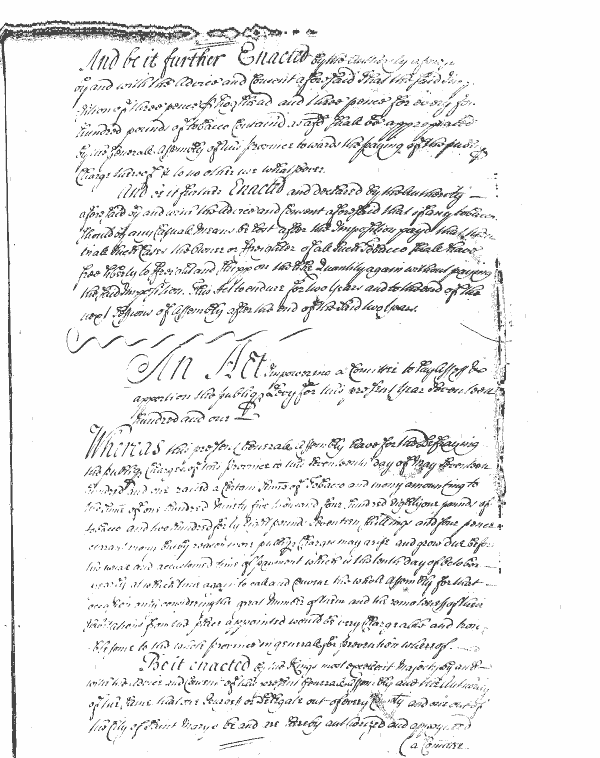 And be it further Enacted by the Authority aforesd
by and with the Advice and Consent aforesaid that the said
of three pence hoghead and three pence for every
hundred pounds of tobacco shall be appropriated
by the Generall Assembly of this Province towards the paying of the publiq
Charge thereof & to no other use whatsoever.
And be it further Enacted and declared by the Authority
aforesaid by and with the Advice and Consent aforesaid that if any tobacco
should by any Casual means be lost after the Imposition payd that then
in all such Cases the Owner or freighter of all such Tobacco shall have
free liberty to freight and shipp on the like Quantity again without paying
the said Imposition. This Act to endure for two Years and to the end of the
next Sessions of Assembly after the end of the said two Years.
An Act Impowering a Comittee to
apportion the publiq Levy for this present Year Seventeen
hundred and one
Whereas this present Generall Assembly have for the Defraying
the publiq Charges of this Province to this Seventeenth day of May Seventeen
hundred and one raised a Certain Sume of Tobacco and mony amounting to
the sume of one hundred Ninty five thousand four hundred Eighty one pounds of
tobacco and two hundred fifty Eight pounds Seventeen shillings and four pence
mony but by reason more publiq Charges may arise and grow due before
the usual and accustomed time of payment which is the tenth day of October
yearly at which time again to call and Convene the whole Assembly for that
occasion only considering the great Number of them and the remoteness of their
habitations from the place appointed would be very Chargeable and
to the whole Province in generall for prevention whereof.
Be it enacted by the Kings most Excellent Majesty by and
with the Advice and Consent of this present Generall Assembly and the Authority
of the same that one Burgess or Delligate out of every County and one out of
the City of Saint Marys be and are hereby authorized and appoynted
a Comittee